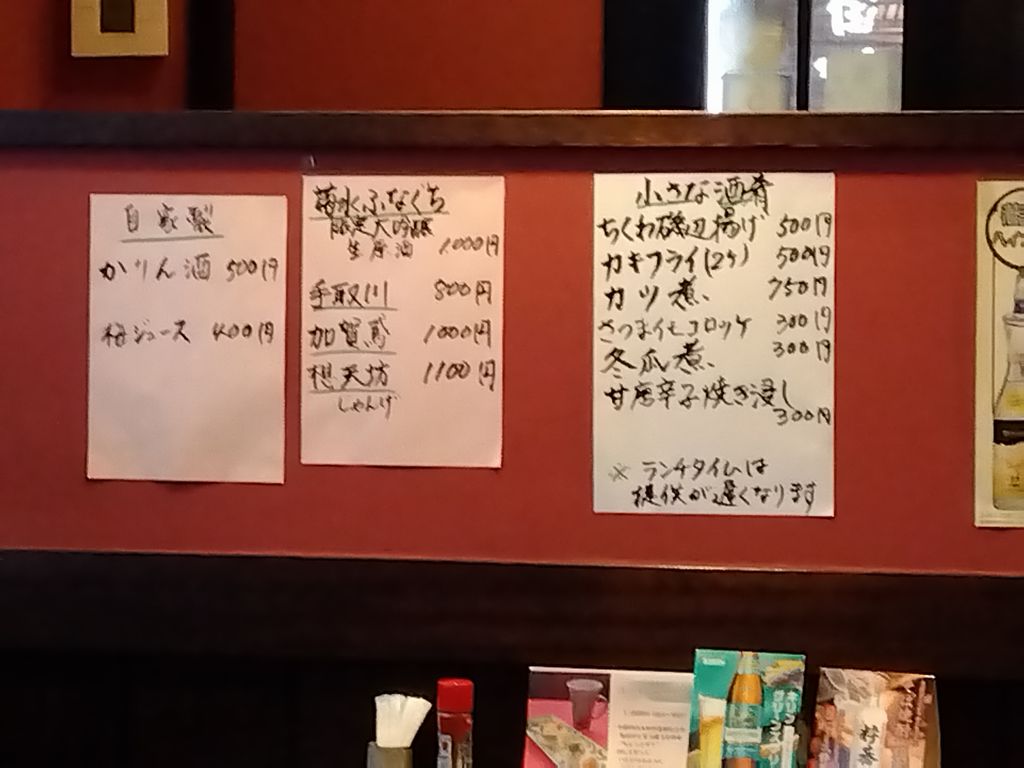 自家製
かりん酒 500円
梅ジュース 400円
菊水ふなぐち
限定大吟醸
生原酒 1000円
手取川 800円
加賀鳶 1000円
想天坊 1100円
じゃんげ
小さな酒肴
ちくわ磯辺揚げ 500円
カキフライ(2ケ) 500円
カツ煮 750円
さつまイモコロッケ 300円
冬瓜煮 300円
甘唐辛子焼き浸し
300円
※ ランチタイムは
提供が遅くなります